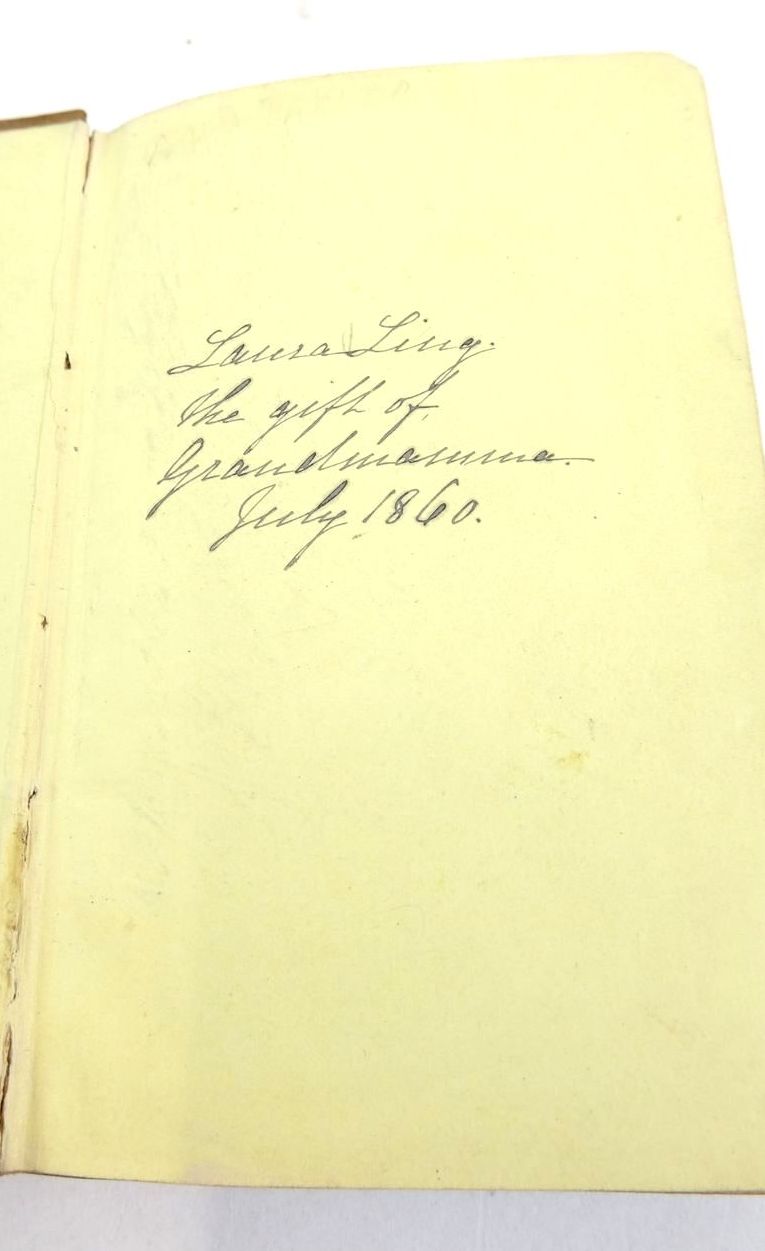 Laura Ling.
the gift of
Grandmamma.
July 1860.